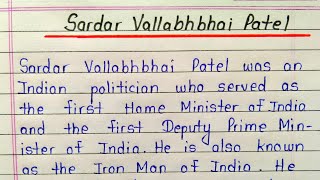 Sardar Vallabhbhai Patel
Sardar Vallabhbhai Patel was an
Indian politician who served as
the first Home Minister of India
and the first Deputy Prime Min-
ister of India. He is also known
as the Iron Man of India. He